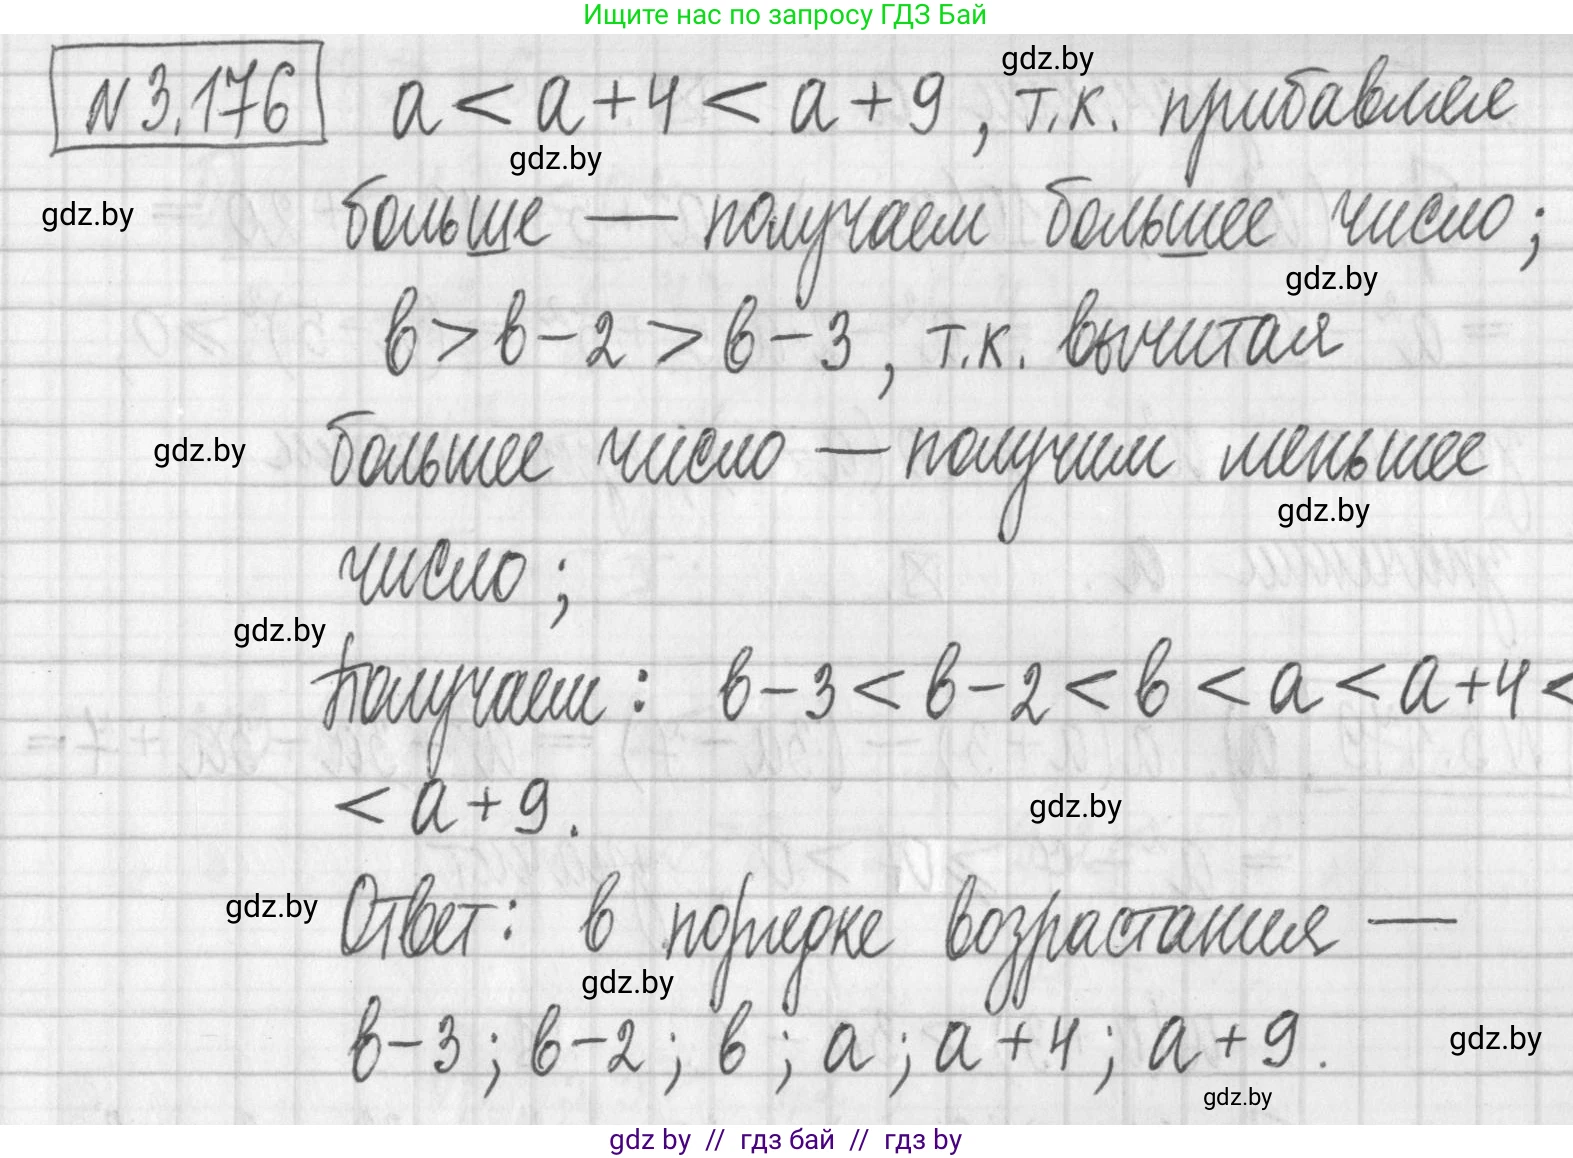 Ищите нас по запросу ГДЗ Бай
gdz.by
N 3.176 a < a + 4 < a + 9 , т.к. прибавляя
gdz.by
gdz.by
больше — получаем большее число ;
gdz.by
в > в - 2 > в - 3 , т.к. вычитая
gdz.by
большее число — получим меньшее
gdz.by
число ;
gdz.by
Получаем : в - 3 < в - 2 < в < a < a + 4 <
< a + 9 .
gdz.by
gdz.by
Ответ : в порядке возрастания —
gdz.by
в - 3 ; в - 2 ; в ; a ; a + 4 ; a + 9 .
gdz.by
gdz.by
gdz by // гдз бай // гдз by